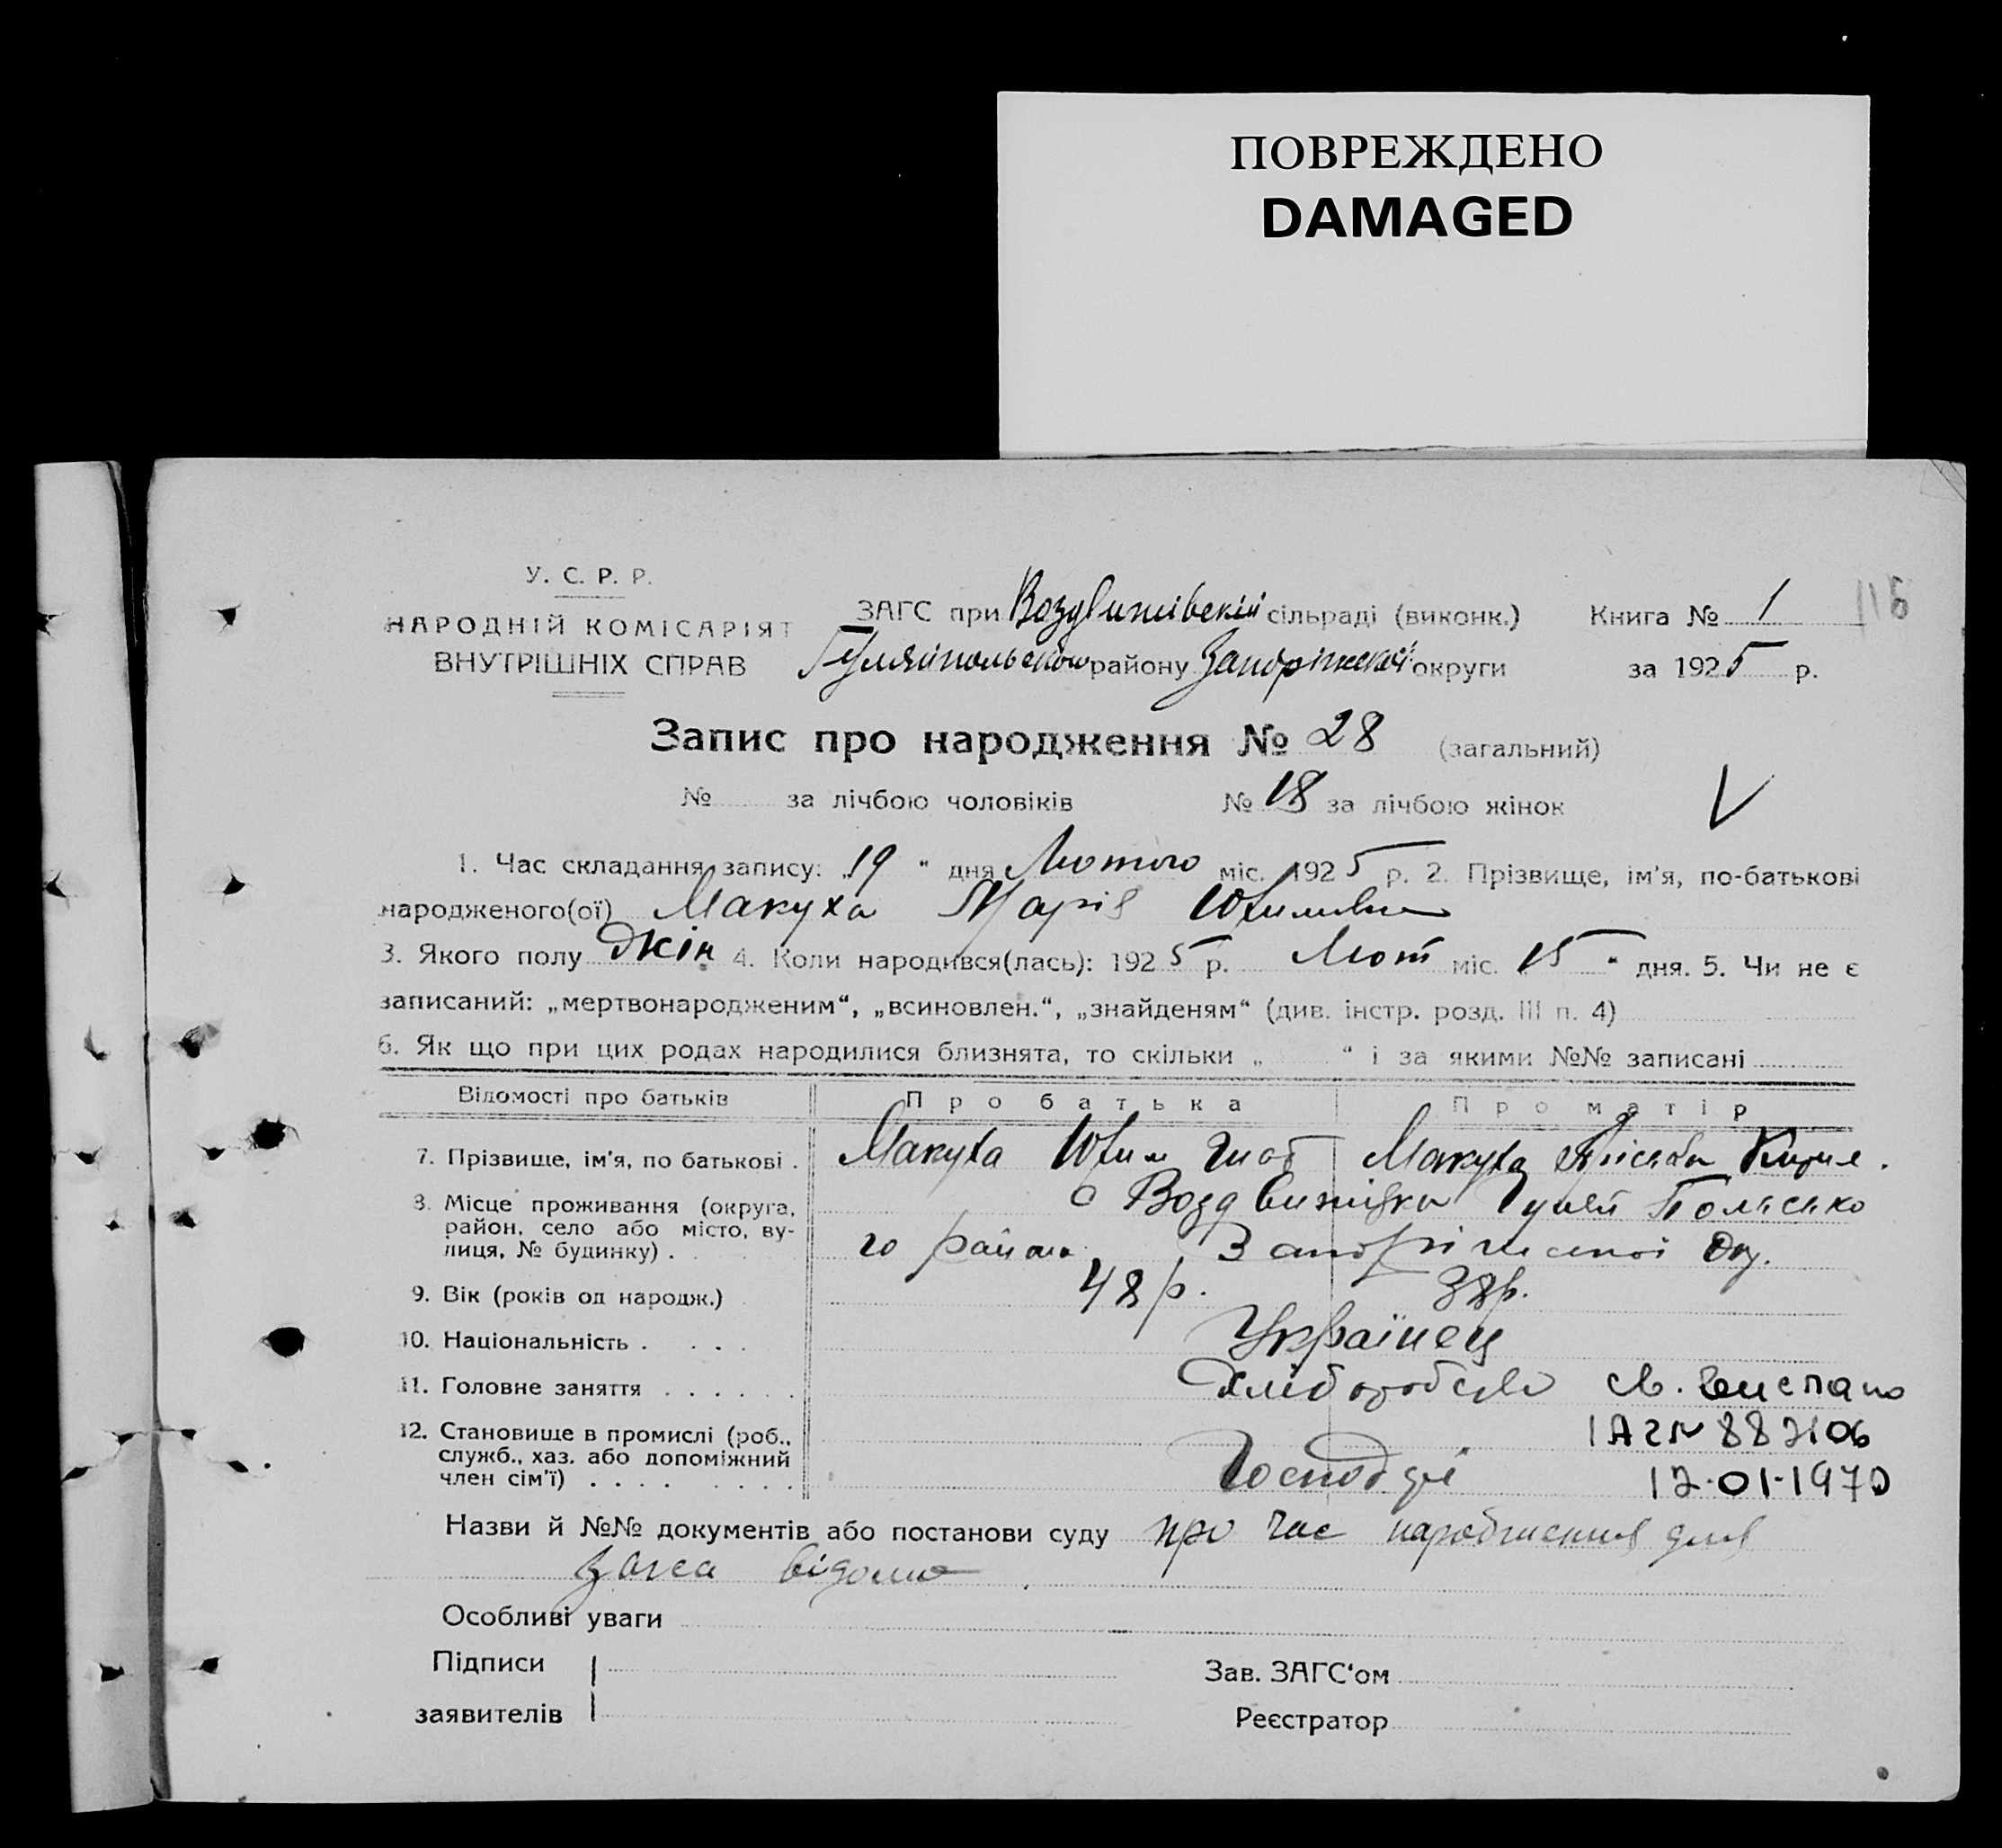 ПОВРЕЖДЕНО
DAMAGED
116
У. С. Р. Р.
НАРОДНІЙ КОМІСАРІЯТ
ВНУТРІШНІХ СПРАВ
ЗАГС при Воздвижівській сільраді (виконк.)
Гуляйпольського району Запоріжської округи
Книга № 1
за 1925 р.
Запис про народження № 28 (загальний)
№ за лічбою чоловіків № 18 за лічбою жінок V
1. Час складання запису: „19 “ дня Лютого міс. 1925 р. 2. Прізвище, ім'я, по-батькові
народженого(ої) Макуха Марія Юхимівна
3. Якого полу жін. 4. Коли народився(лась): 1925 р. Лют міс. 15 “ дня. 5. Чи не є
записаний: „мертвонародженим“, „всиновлен.“, „знайденям“ (див. інстр. розд. III п. 4)
6. Як що при цих родах народилися близнята, то скільки „ “ і за якими №№ записані
Відомості про батьків Про батька Про матір
7. Прізвище, ім'я, по батькові . Макуха Юхим Макуха Кирил.
8. Місце проживання (округа, с Воздвижівка Гуляй Польсько
район, село або місто, ву-
лиця, № будинку) . го района Запоріжської Окр.
9. Вік (років од народж.) 48 р. 38р.
10. Національність . . . . Українец
11. Головне заняття . . . . . . хліборобство св.
12. Становище в промислі (роб.,
служб., хаз. або допоміжний
член сім'ї) . . . . . . . .
887106
12-01-1970
Назви й №№ документів або постанови суду про час народження для
загса відомо
Особливі уваги
Підписи
заявителів
Зав. ЗАГС'ом
Реєстратор